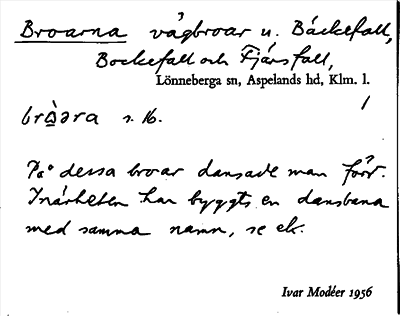 Broarna vägbroar u. Bäckefall,
Bockefall och Fjärsfall,
Lönneberga sn, Aspelands hd, Klm. l.
bròara s. 16.
På dessa broar dansade man förr.
I närheten har byggts en dansbana
med samma namn, se ek.
Ivar Modéer 1956